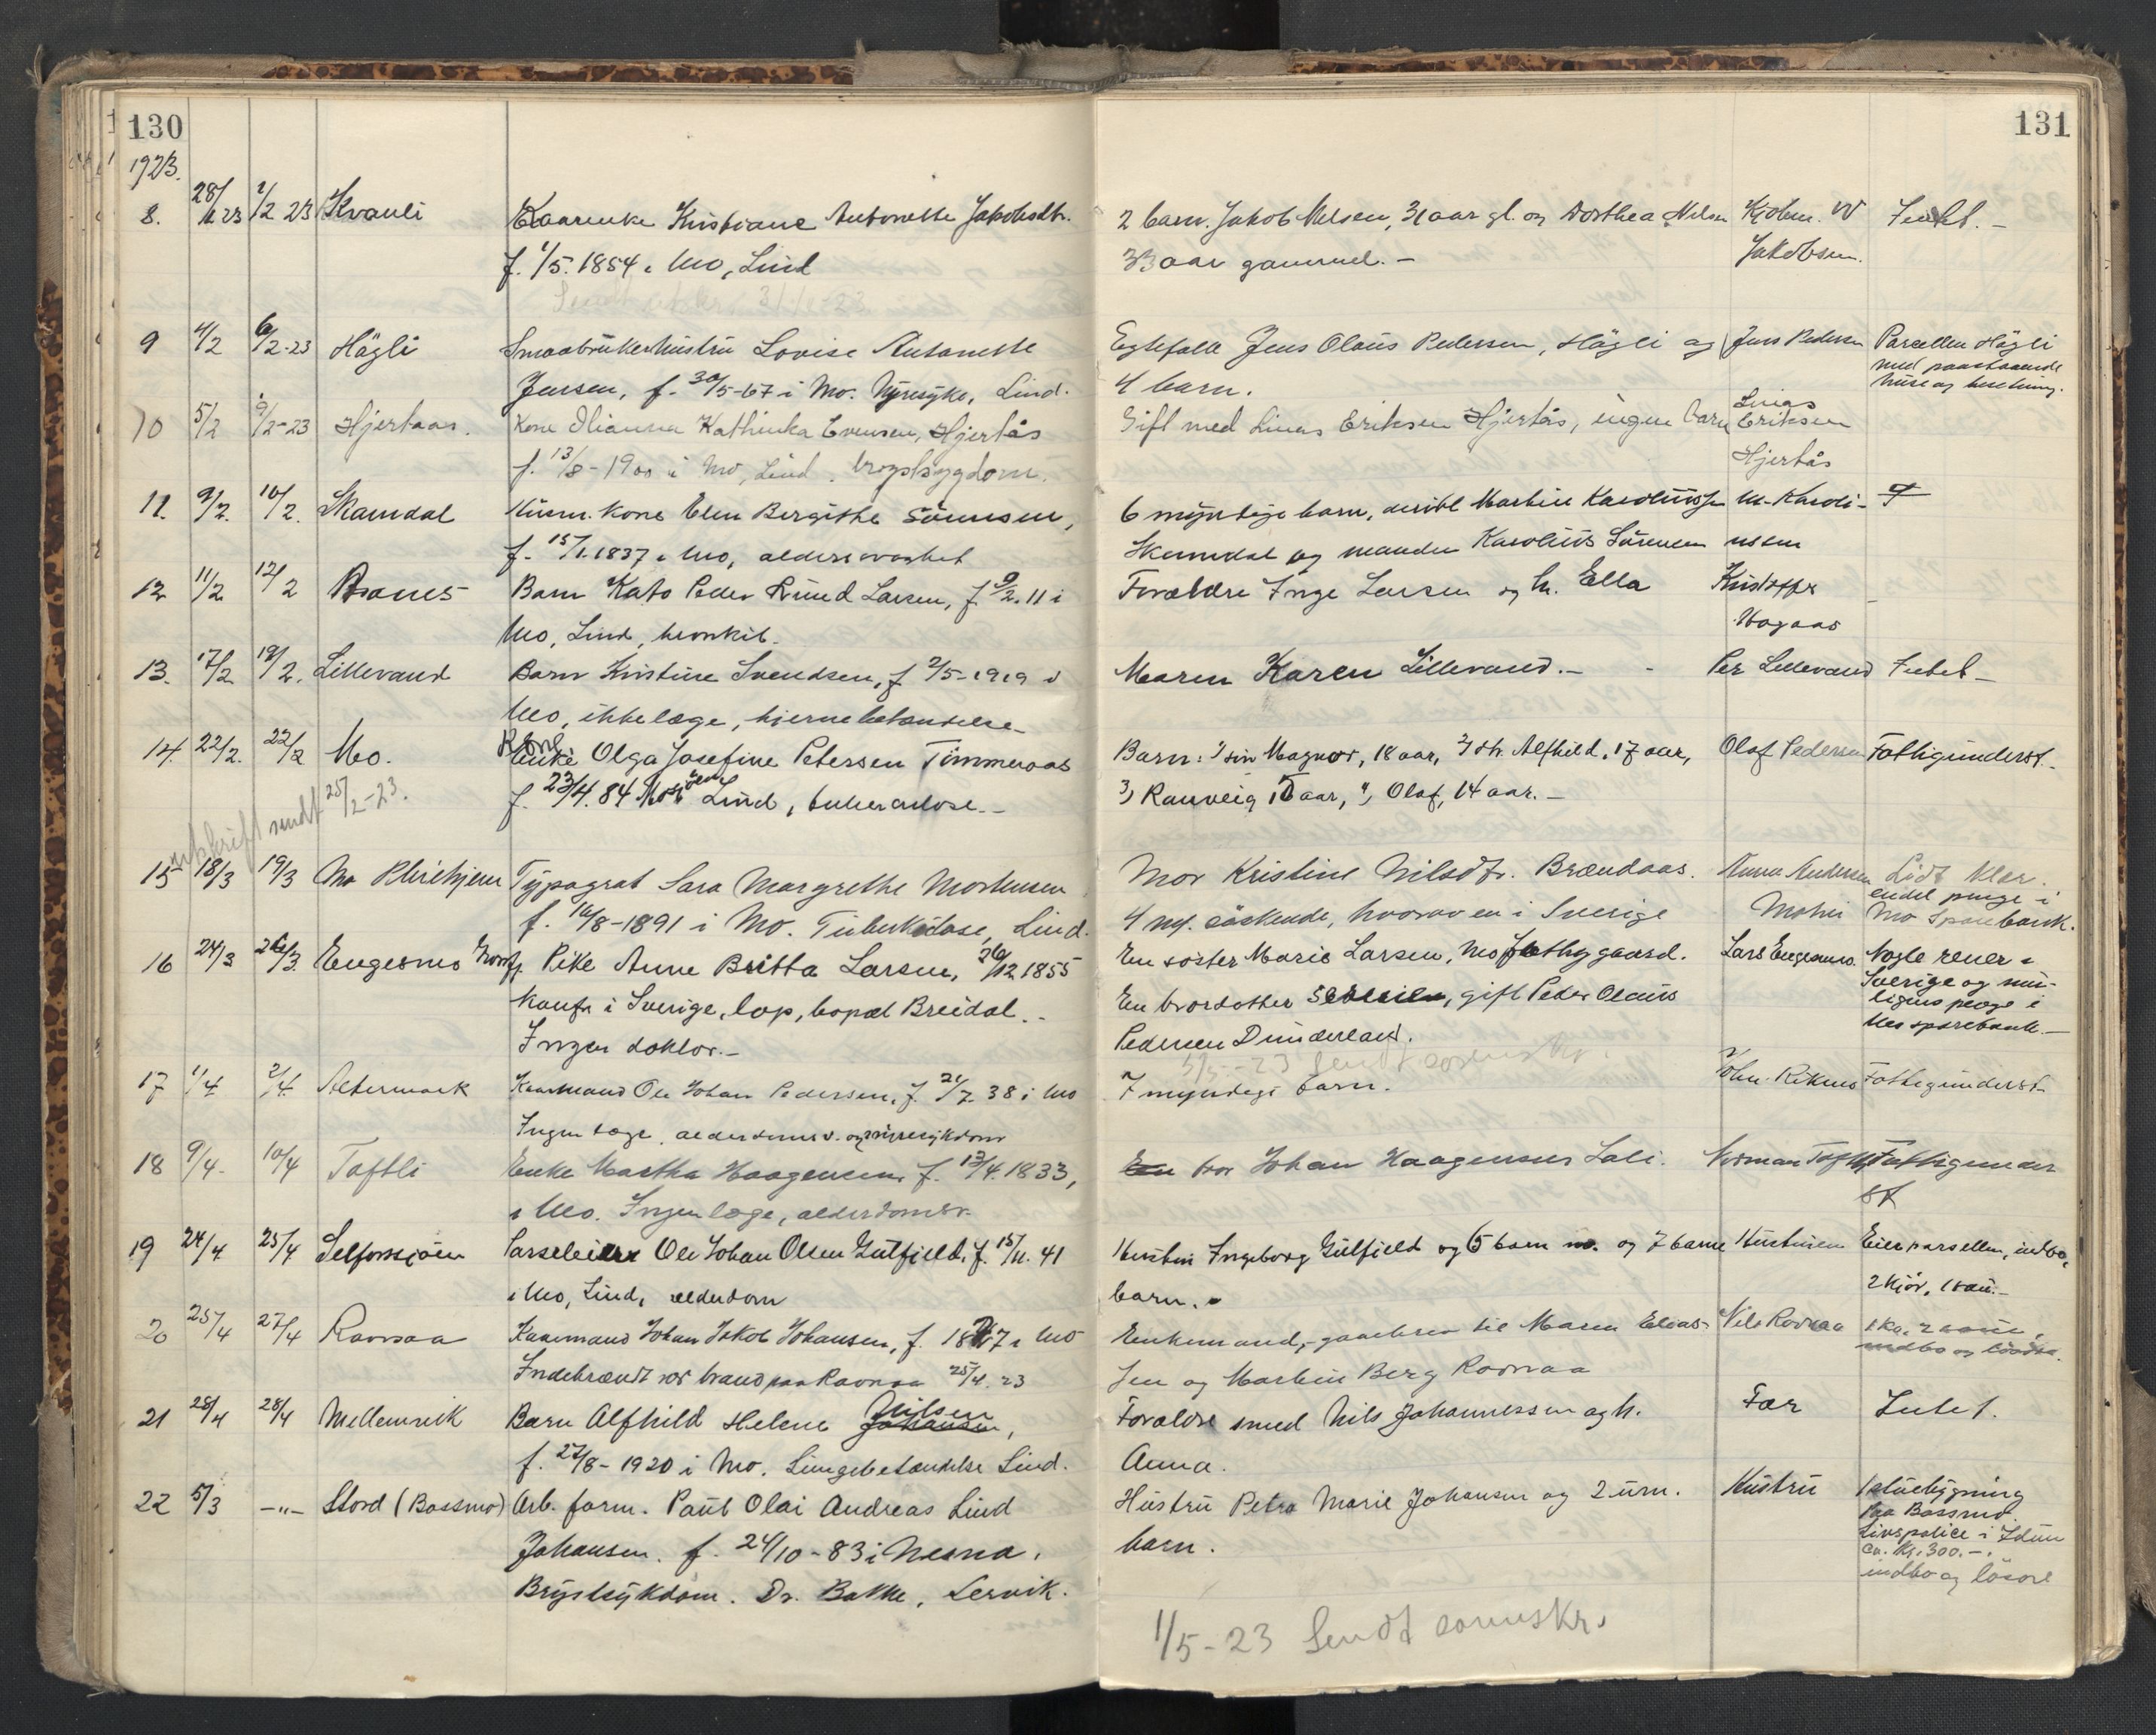 130
131
1923.
8. 28/1 23 1/2 23 Kvanli Kaarenke Kristiane Antonette Jakobsdtr. 2 barn. Jakob Nilsen, 31 aar gl. og Dorthea Nilsen Kjøbm. W Intet. -
f. 1/5. 1854 i Mo, Lind 33 aar gammel. - Jakobsen.
9 4/2 6/2-23 Hågli Smaabrukerhustru Lovise Antonette Egtefælle Jens Olaus Pedersen, Hågli og Jens Pedersen Parcellen Hågli
Jensen, f. 30/5-67 i Mo. Nyresyke, Lind. 4 barn. med paastaaende
huse og besetning.
10 5/2 9/2-23 Hjertaas. Kone Olianna Kathinka Evensen, Hjertås Gift med Linas Eriksen Hjertås, ingen barn Linas Eriksen
f. 13/8-1900 i Mo, Lind. brystsygdom. Hjertås
11. 9/2. 10/2. Skamdal Husm. kone Elen Bergithe Sörensen, 6 myndige barn, Martin Karoliussen M. Karoli-
f. 15/1. 1837 i Mo, alderssvakhet Skamdal og manden Karolius Sörensen ussen
12. 11/2 12/2 Barn Kato Peder Larsen, f. 9/2. 11 i Forældre Inge Larsen og h. Ella Kristoffer
Mo, Lind, bronkit. Hagaas
13. 17/2 19/2. Lillevand Barn Kristine Svendsen, f 2/5-1919 i Maren Karen Lillevand. - Per Lillevand Intet -
Mo, ikke læge, hjernebetændelse -
14. 22/2. 22/2 Mo. Kone Enke Olga Josefine Petersen Timmeraas Barn: 1) sön Magnor, 18 aar, 2) dtr. Alfhild, 17 aar, Olaf Pedersen Fattigunderst.
f. 23/4. 84 Lind, tuberculose. - 3) Ranveig 15 aar, 4) Olaf, 14 aar. -
utskrift sendt 25/2-23.
15 18/3 19/3 Mo Typograf Sara Margrethe Mortensen Mor Kristine Nilsdtr. Brændaas. Anna Andersen Lidt klær.
f. 16/8-1891 i Mo. Tuberkulose, Lind. 4 my. söskende, hvorav en i Sverige Moheim endel penge i
Mo Sparebank.
16 24/3 26/3. Engesmo Pike Anne Britta Larsen, 26/12 1855 En söster Marie Larsen, Mo fattiggaard. Lars Engesmo. Nogle rener i
Konf. i Sverige, lap, bopæl Breidal. - En brordatter, gift Peder Olaus Sverige og mu-
Ingen doktor. - Pedersen Dunderland. ligens penge i
Mo sparebank. -
17 1/4 2/4. Altermark Kaarmand Ole Johan Pedersen, f. 21/7. 38 i Mo 7 myndige barn. Fattigunderst.
Ingen læge, alderdomsv. og nyresykdom
18 9/4. 10/4 Toftli Enke Martha Haagensen, f. 13/4. 1833, En bror Johan Haagensen Lali. Norman Toftli Fattigunder
i Mo. Ingen læge, alderdomsv. st
19 24/4 25/4 Selforssjöen Parseleier Ole Johan Olsen Gulfjeld, f. 15/11. 41 Hustru Ingeborg Gulfjeld og 6 barn m. og 7 barne Hustruen Eier parsellen, indbo,
i Mo, Lind, alderdom barn. 2 kjör, 1 sau. -
20 25/4 27/4 Ravnaa Kaarmand Johan Jakob Johansen, f. 1847 i Mo Enkemand, gaardbru til Maren Elias- Nils Ravnaa
Indebrændt ved brand paa Ravnaa 25/4. 23 sen og Martin Berg Ravnaa indbo og lösöre.
21 28/4 28/4 Mellemvik Barn Alfhild Helene Nilsen Johansen, Forældre smed Nils Johannessen og h. Far Intet.
f. 27/8-1920 i Mo. Lungebetændelse Lind. Anna.
22 5/3 -"- Stord (Bossmo) Arb. form. Paul Olai Andreas Lind Hustru Petra Marie Johansen og 2 um. Hustru 1 stuebygning
Johansen. f. 24/10-83 i Nesna. barn. paa Bossmo.
Brystsykdom. Dr. Bakke, Lervik. Livspolice i Idun
ca. Kr. 300. -.
indbo og lösöre
1/5-23 Sendt